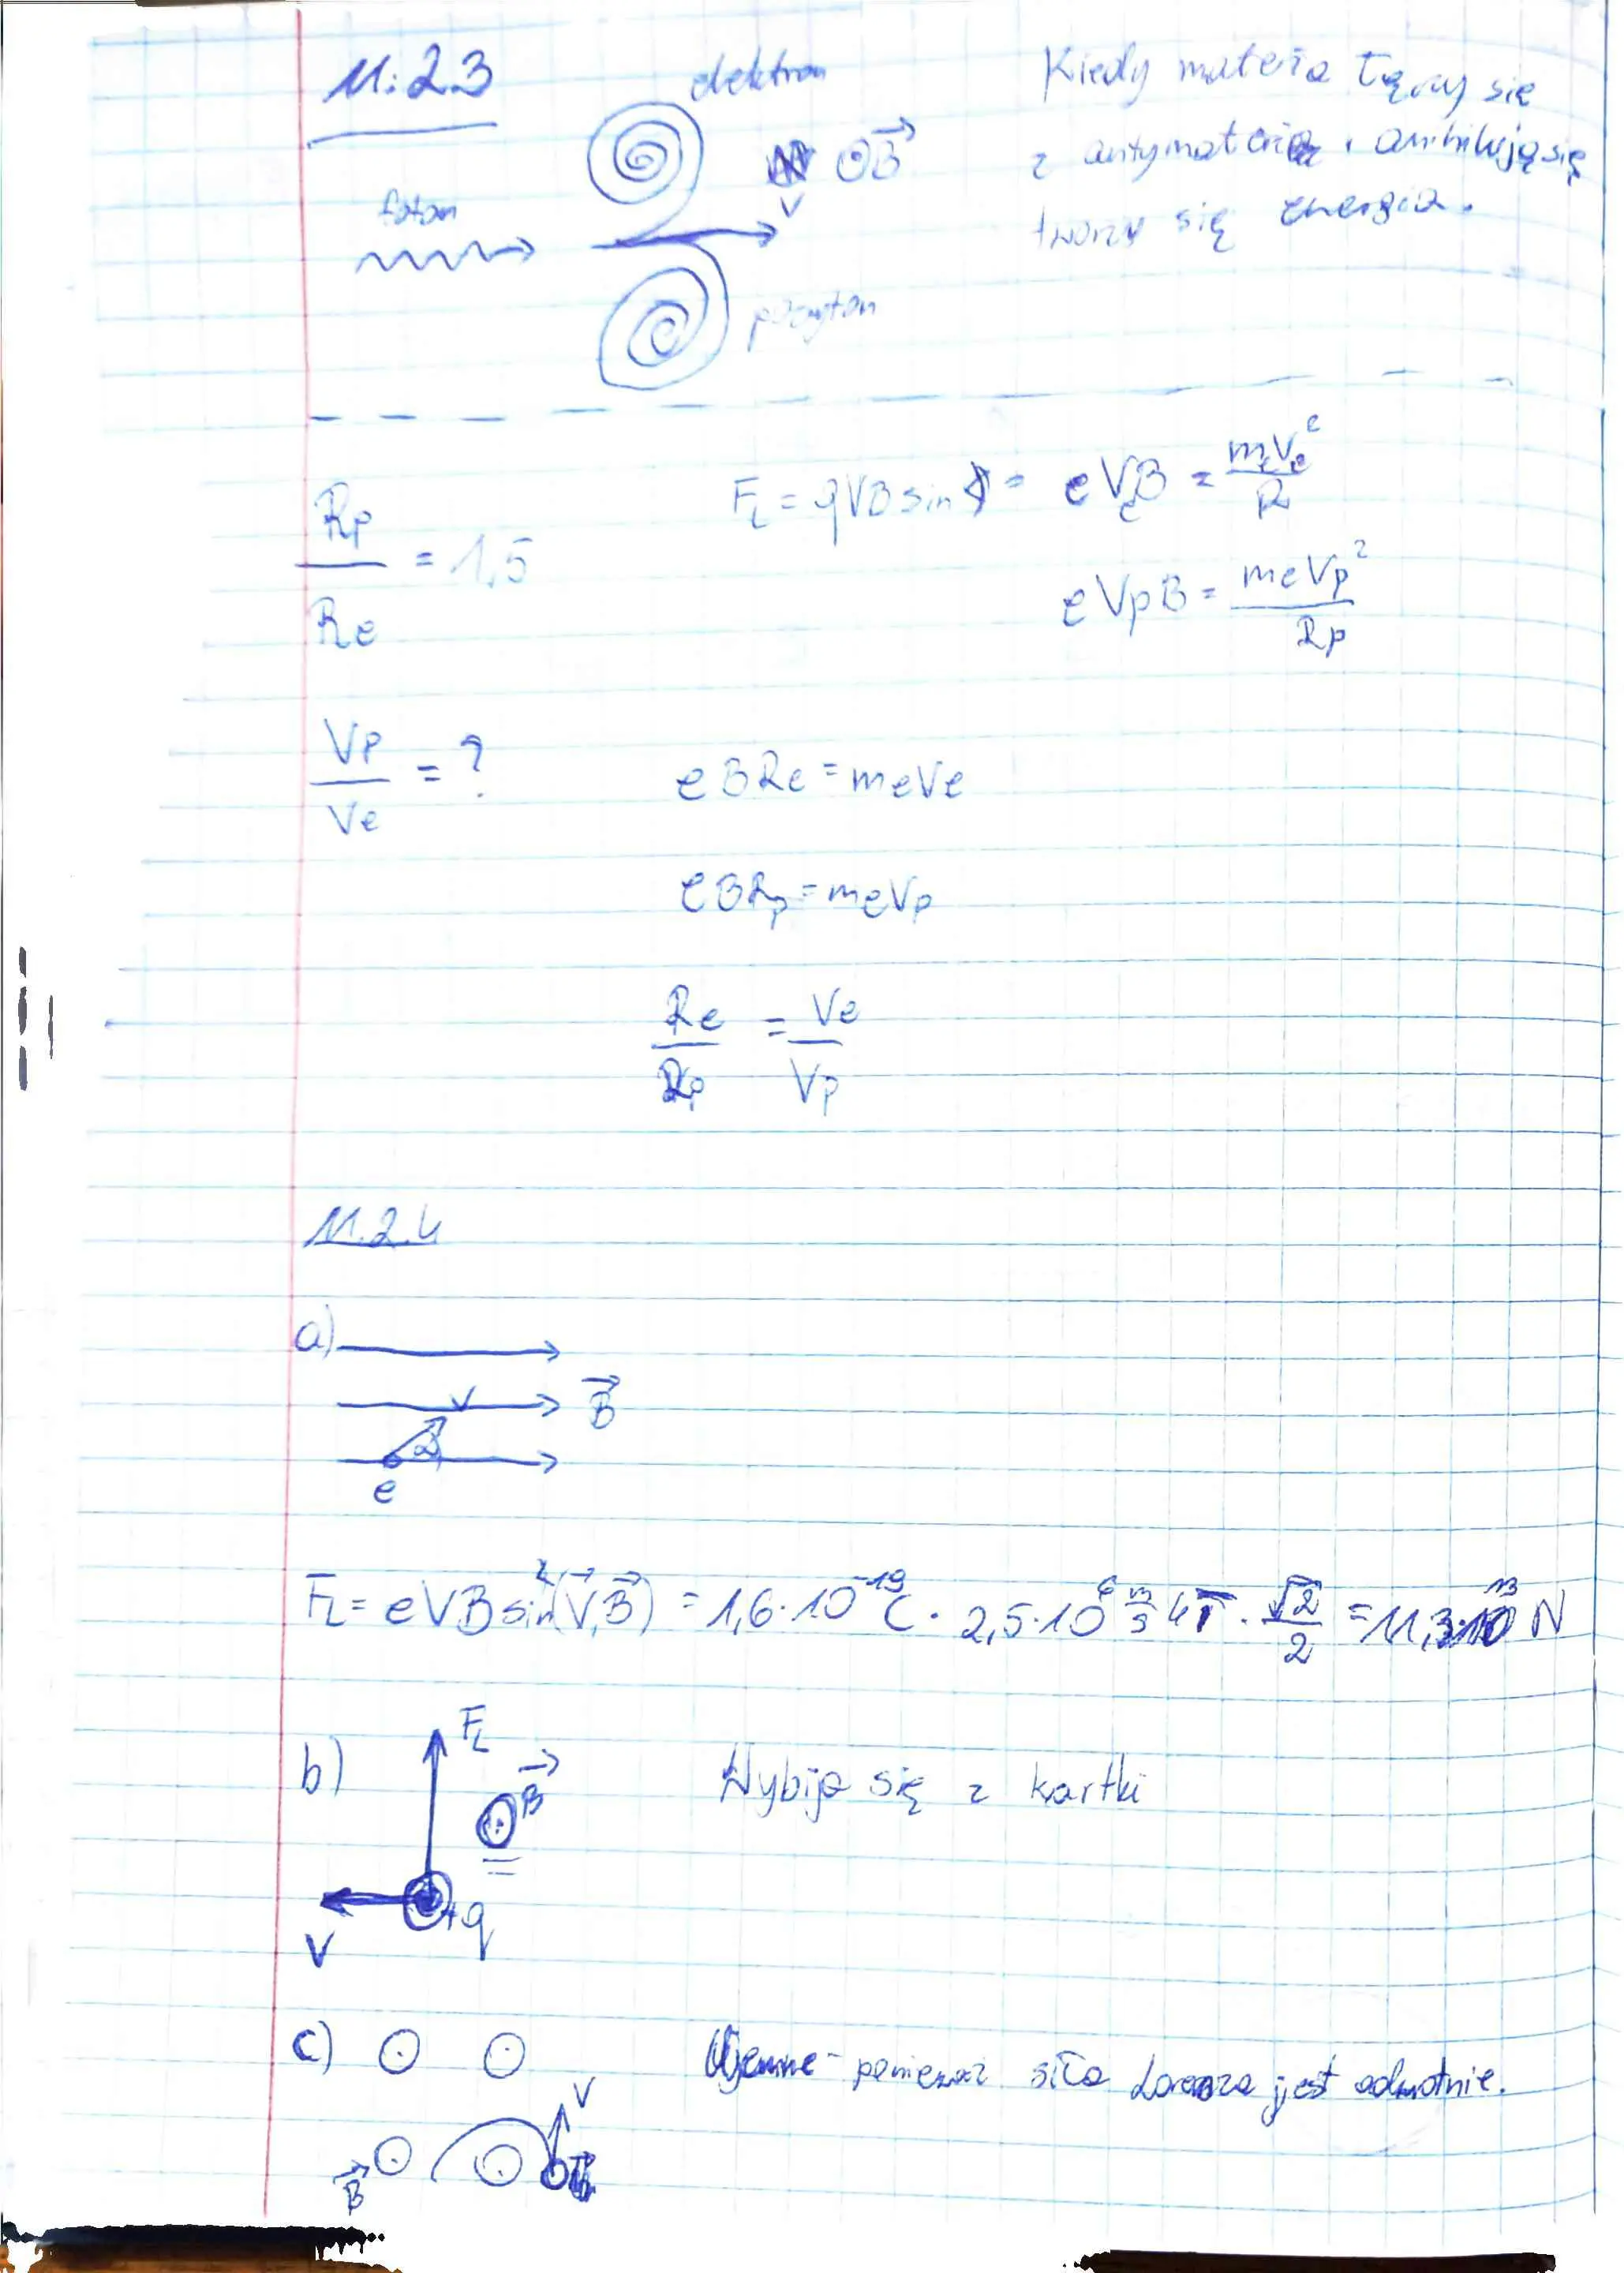 11.2.3
elektron
Kiedy materia łączy się
z antymaterią, anihilują się
tworzy się energia.
⊙B⃗
foton
V
pozyton
Rp/Re = 1,5
F_L = qVB sin∢ = eVeB = meVe²/R
eVpB = meVp²/Rp
Vp/Ve = ?
eBRe = meVe
eBRp = meVp
Re/Rp = Ve/Vp
11.2.4
a)
V
B⃗
α
e
F_L = eVB sin∢(V⃗,B⃗) = 1,6·10⁻¹⁹C · 2,5·10⁶ m/s 4T · √2/2 = 11,3·10⁻¹³ N
b)
F_L
B⃗
Wybija się z kartki
+q
V
c)
Ujemne - ponieważ siła Lorenza jest odwrotnie.
V
B⃗